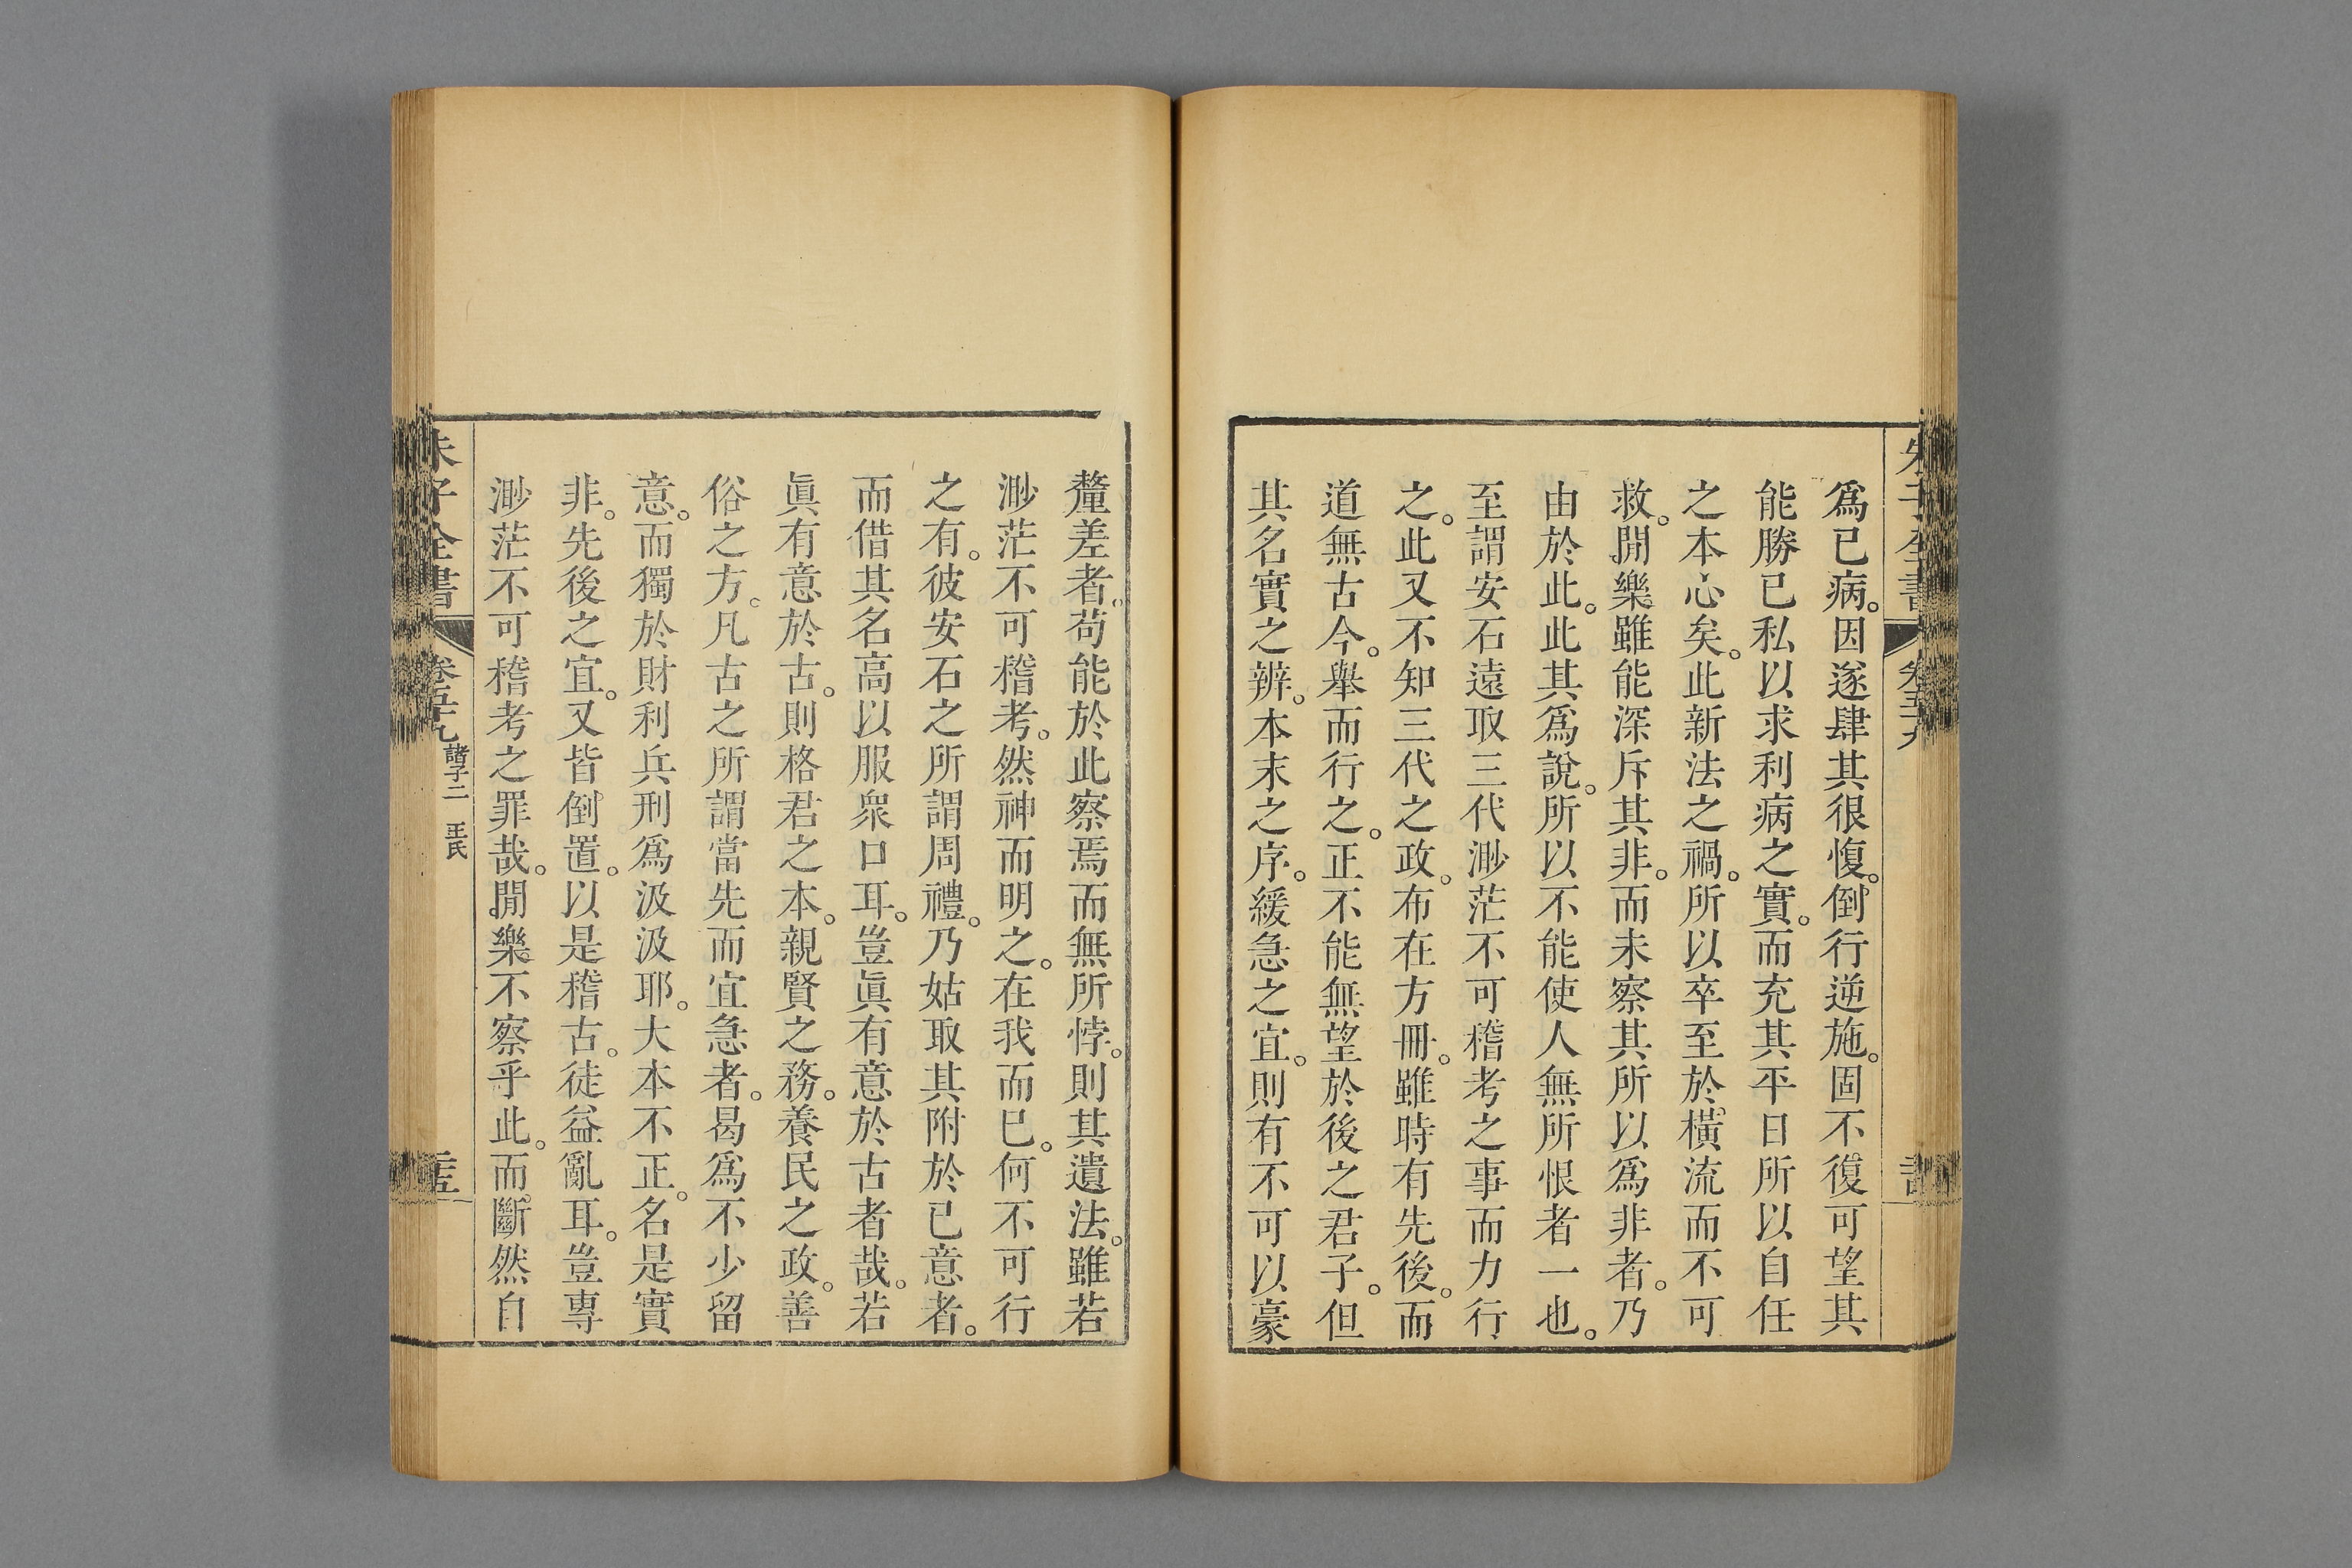 朱子全書 卷五十九
爲已病。因遂肆其很愎。倒行逆施。固不復可望其
能勝已私以求利病之實。而充其平日所以自任
之本心矣。此新法之禍。所以卒至於橫流而不可
救。閒樂雖能深斥其非。而未察其所以爲非者。乃
由於此。此其爲說。所以不能使人無所恨者一也。
至謂安石遠取三代渺茫不可稽考之事而力行
之。此又不知三代之政。布在方冊。雖時有先後。而
道無古今。舉而行之。正不能無望於後之君子。但
其名實之辨。本末之序。緩急之宜。則有不可以豪
釐差者。苟能於此察焉而無所悖。則其遺法。雖若
渺茫不可稽考。然神而明之。在我而已。何不可行
之有。彼安石之所謂周禮。乃姑取其附於已意者。
而借其名高以服衆口耳。豈眞有意於古者哉。若
眞有意於古。則格君之本。親賢之務。養民之政。善
俗之方。凡古之所謂當先而宜急者。曷爲不少留
意。而獨於財利兵刑爲汲汲耶。大本不正。名是實
非。先後之宜。又皆倒置。以是稽古。徒益亂耳。豈專
渺茫不可稽考之罪哉。閒樂不察乎此。而斷然自
朱子全書 卷五十九 諸子二 王氏